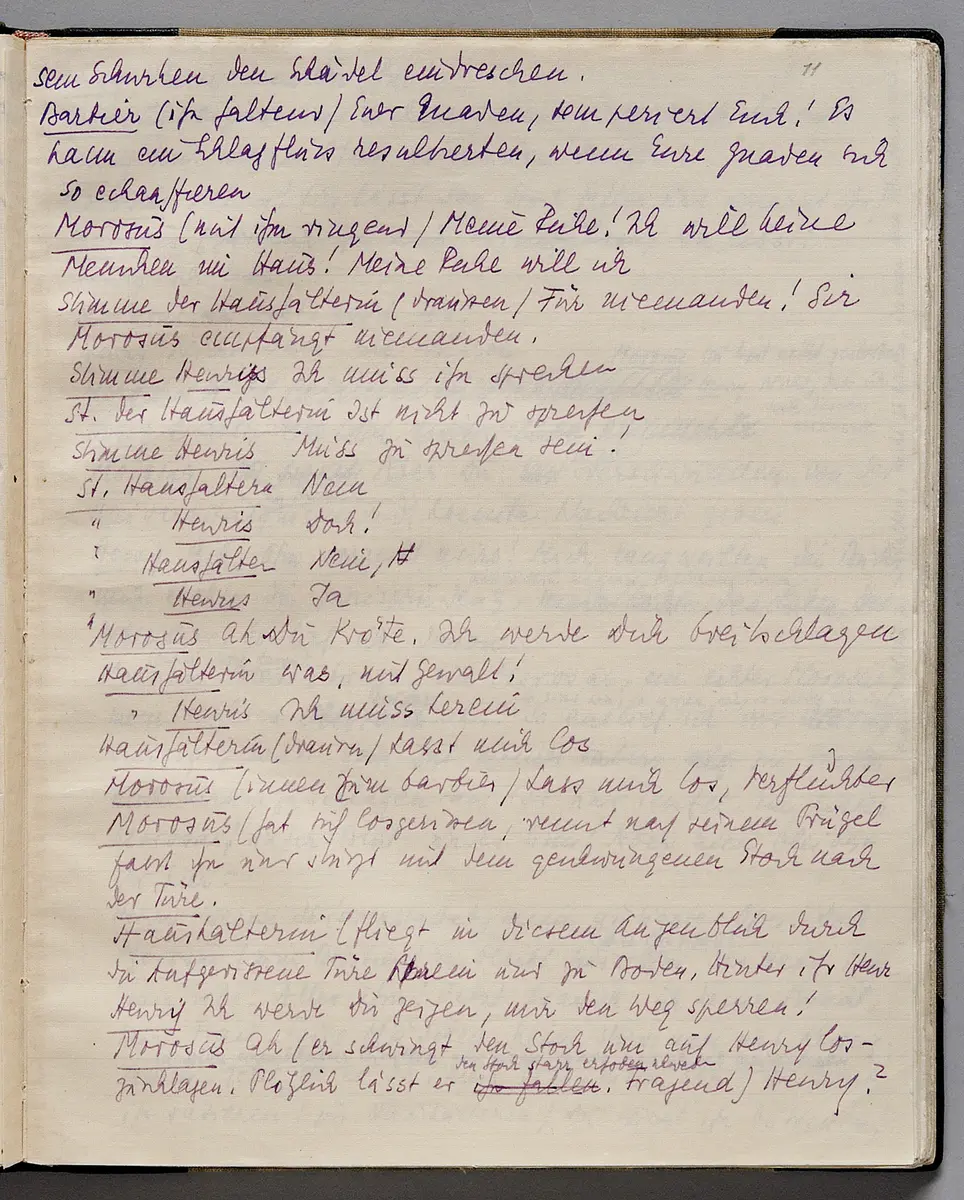 11
sem Schurken den Schädel eindreschen.
Barbier (ihn haltend) Euer Gnaden, temperiert Euch! Es
kann ein Schlagfluss resultierten, wenn Eure Gnaden sich
so echauffieren
Morosus (mit ihm ringend) Meine Ruhe! Ich will keine
Menschen im Haus! Meine Ruhe will ich
Stimme der Haushälterin (draussen) Für niemanden! Sir
Morosus empfängt niemanden.
Stimme Henrys Ich muss ihn sprechen
St. der Haushälterin Ist nicht zu sprechen
Stimme Henris Muss zu sprechen sein!
St. Haushälterin Nein
" Henris Doch!
" Haushälter Nein,
" Henris Ja
" Morosus Ah Du Kröte. Ich werde Dich breitschlagen
Haushälterin was, mit Gewalt!
" Henris Ich muss herein
Haushälterin (draussen) Lasst mich los
Morosus (innen zum Barbier) Lass mich los, verfluchter
Morosus (hat sich losgerissen, rennt nach seinem Prügel
fasst ihn und stürzt mit dem geschwungenen Stock nach
der Türe.
Haushälterin (fliegt in diesem Augenblick durch
die aufgerissene Türe herein und zu Boden. Hinter ihr Henr
Henry Ich werde Dir zeigen, mir den Weg sperren!
Morosus Ah (er schwingt den Stock um auf Henry los-
den Stock starr erhoben
zuschlagen. Plötzlich lässt er ihn fallen. fragend) Henry?